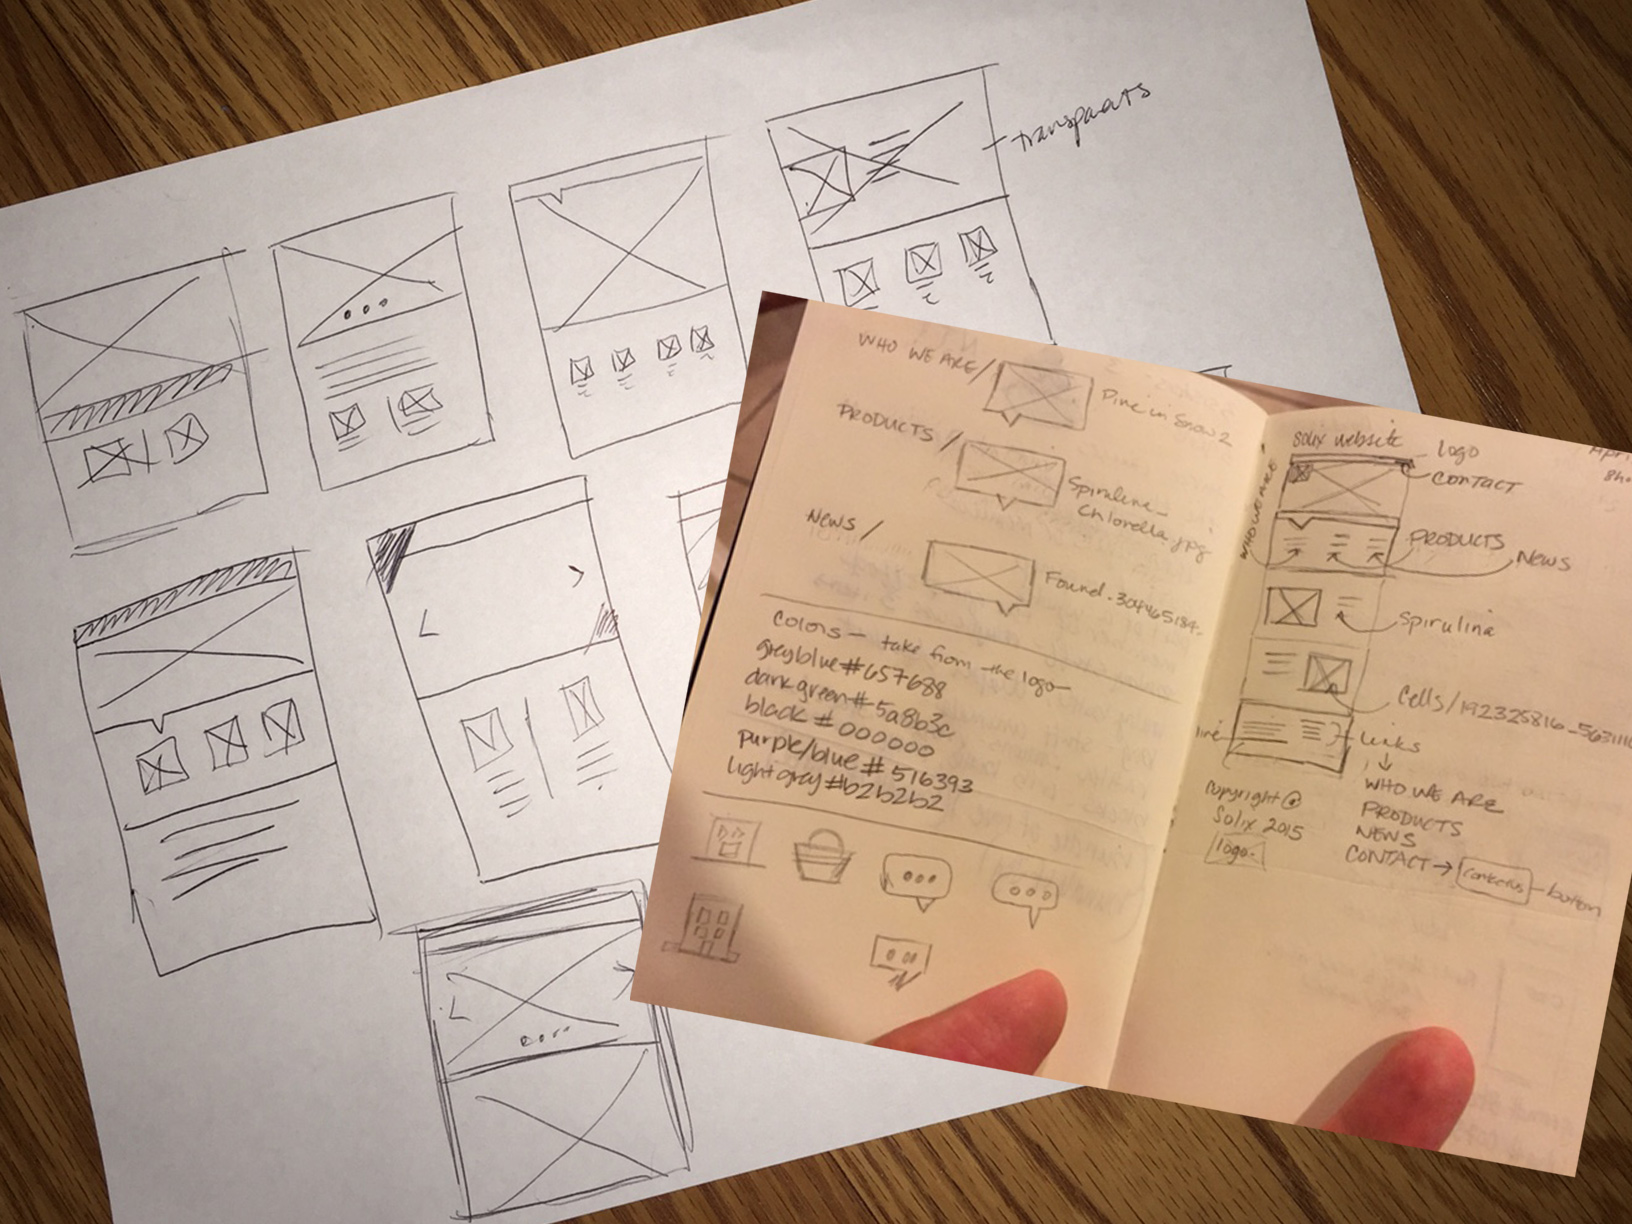 transparts
WHO WE ARE /
Pine in Snow 2
PRODUCTS /
Spirulina_
Chlorella.jpg
News /
Found_304465184_
Colors — take from the logo
grey blue #657688
dark green # 5a8b3c
black # 000000
purple/blue # 516393
light gray #b2b2b2
Solix website
logo
CONTACT
WHO WE ARE
PRODUCTS
NEWS
spirulina
Cells/192325816_
line
Links
WHO WE ARE
PRODUCTS
NEWS
CONTACT →
button
copyright @
Solix 2015
logo